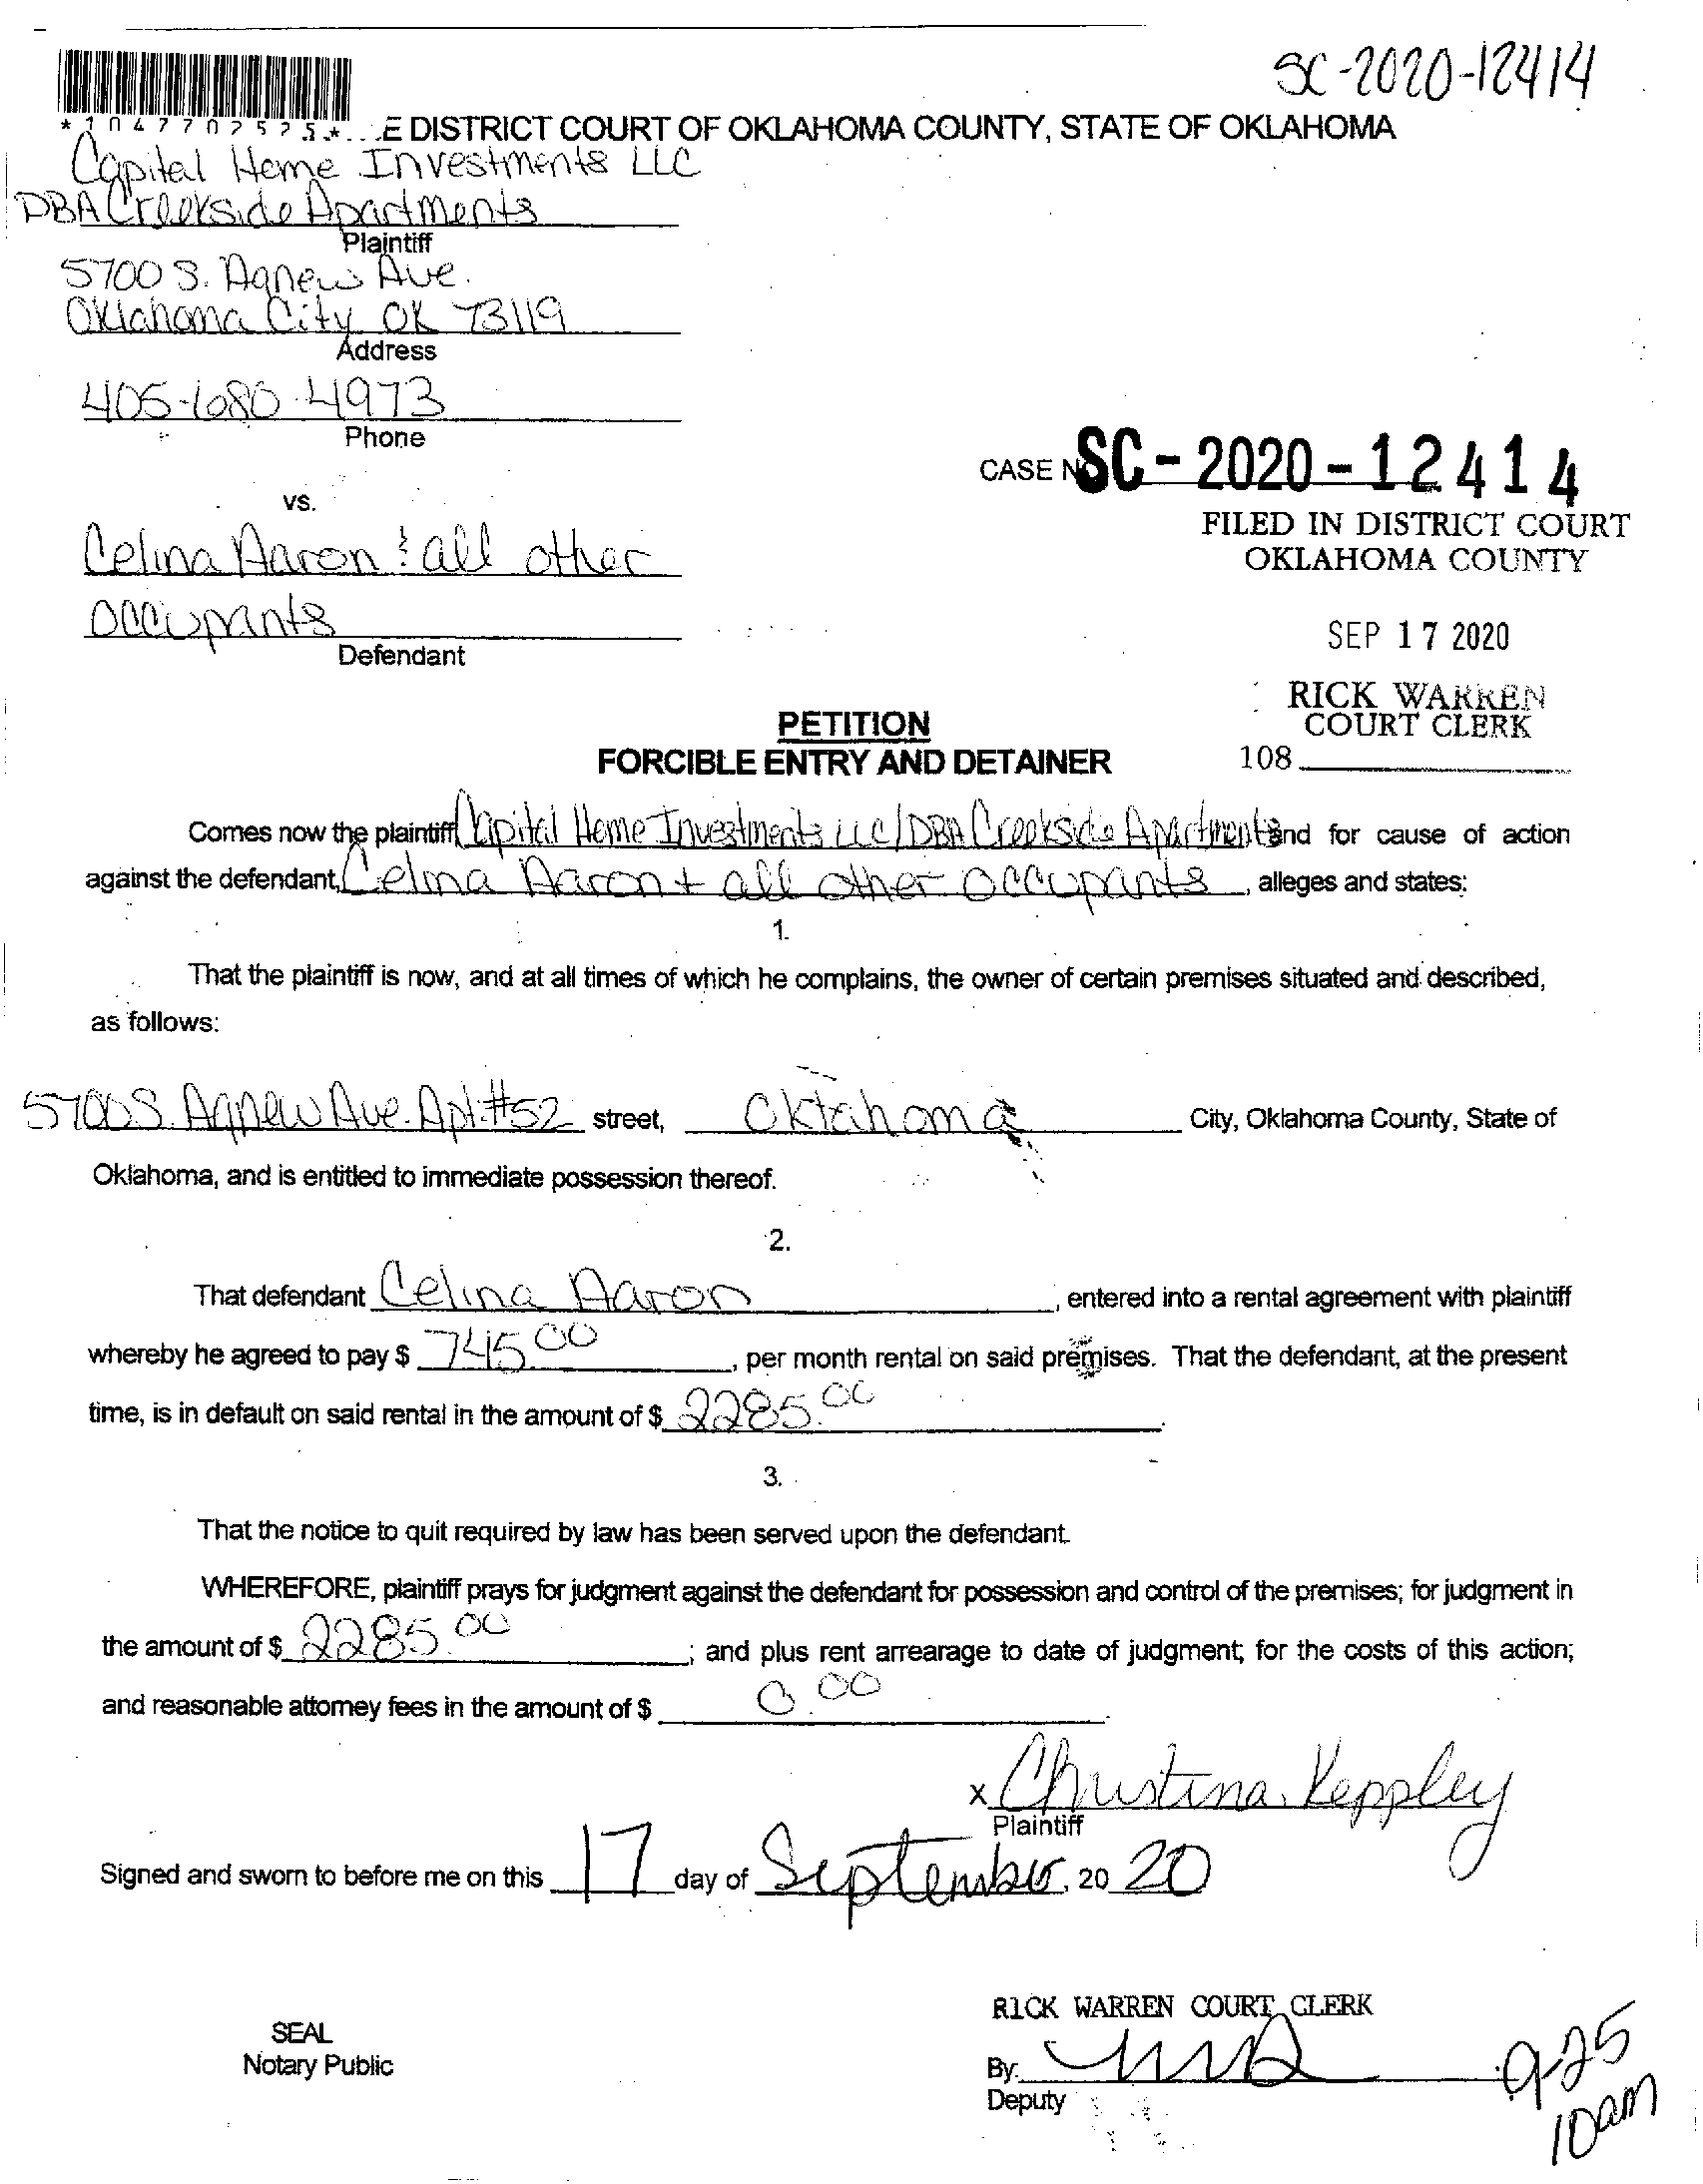 SC-2020-12414
*1047702525*
E DISTRICT COURT OF OKLAHOMA COUNTY, STATE OF OKLAHOMA
Capital Home Investments LLC
DBA Creekside Apartments
Plaintiff
5700 S. Agnew Ave.
Oklahoma City OK 73119
Address
405-680-4973
Phone
CASE NO SC-2020-12414
FILED IN DISTRICT COURT
OKLAHOMA COUNTY
vs.
Celina Aaron & all other
occupants
Defendant
SEP 17 2020
RICK WARREN
COURT CLERK
108
PETITION
FORCIBLE ENTRY AND DETAINER
Comes now the plaintiff Capital Home Investments LLC/DBA Creekside Apartments and for cause of action
against the defendant, Celina Aaron + all other occupants, alleges and states:
1.
That the plaintiff is now, and at all times of which he complains, the owner of certain premises situated and described,
as follows:
5700 S. Agnew Ave. Apt.#52 street, Oklahoma City, Oklahoma County, State of
Oklahoma, and is entitled to immediate possession thereof.
2.
That defendant Celina Aaron, entered into a rental agreement with plaintiff
whereby he agreed to pay $ 745.00, per month rental on said premises. That the defendant, at the present
time, is in default on said rental in the amount of $ 2285.00.
3.
That the notice to quit required by law has been served upon the defendant.
WHEREFORE, plaintiff prays for judgment against the defendant for possession and control of the premises; for judgment in
the amount of $ 2285.00; and plus rent arrearage to date of judgment; for the costs of this action;
and reasonable attorney fees in the amount of $ 0.00.
x Christina Keppley
Plaintiff
Signed and sworn to before me on this 17 day of September, 20 20
RICK WARREN COURT CLERK
SEAL
Notary Public
By:
Deputy
9-25
10am